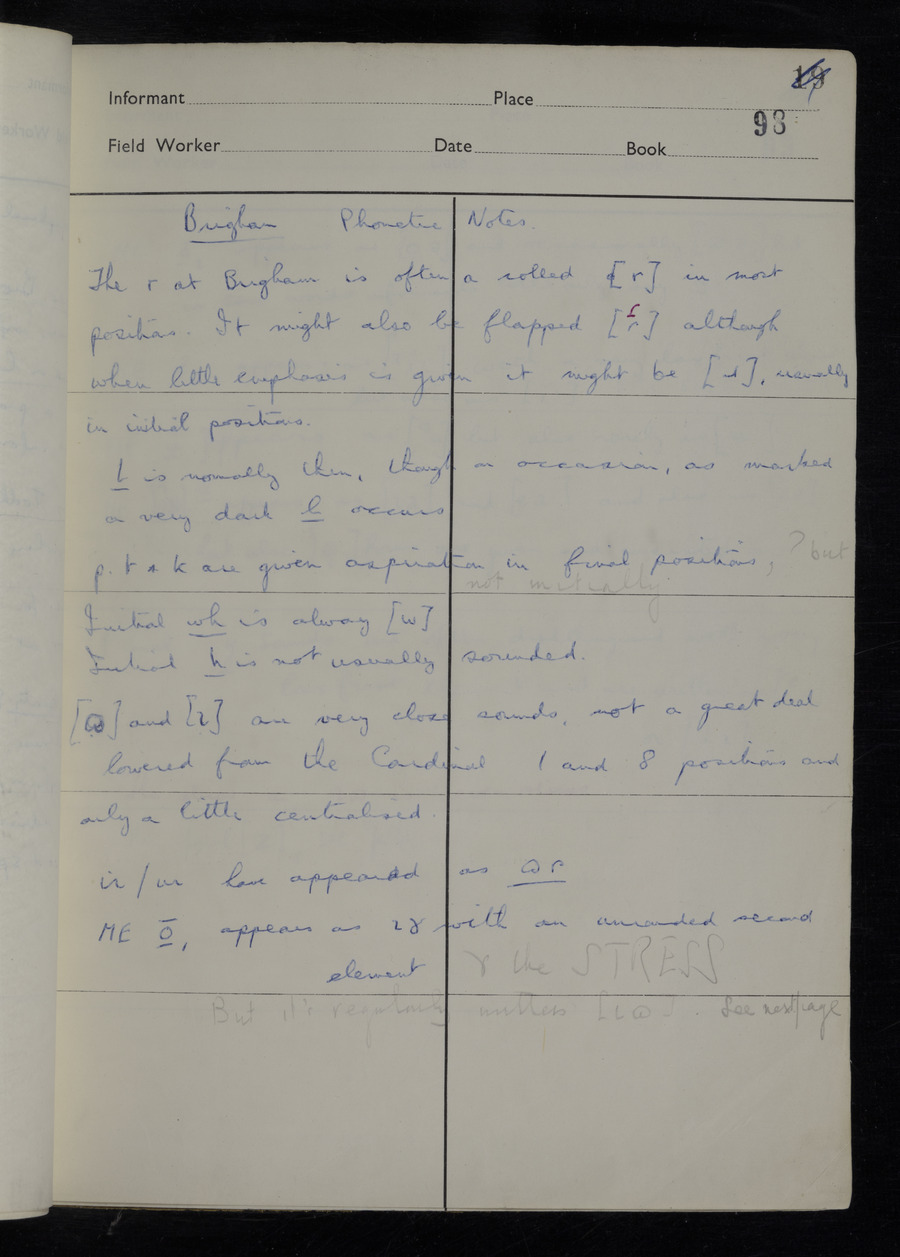 19
Informant Place
98
Field Worker Date Book
Brigham Phonetic Notes.
The r at Brigham is often a rolled [r] in most
positions. It might also be flapped [ɾ] although
when little emphasis is given it might be [ɹ], usually
in initial positions.
l is normally then, though on occasion, as marked
a very dark l occurs
p. t & k are given aspiration in final positions, ? but
not initially.
Initial wh is alway [w]
Initial h is not usually sounded.
[ɷ] and [ɩ] are very close sounds, not a great deal
lowered from the Cardinal 1 and 8 positions and
only a little centralised.
ir / ur have appeared as ɷr
ME ō, appears as ɩɤ with an unrounded second
element & the STRESS
But it's regularly written [ɩɷ]. See next page